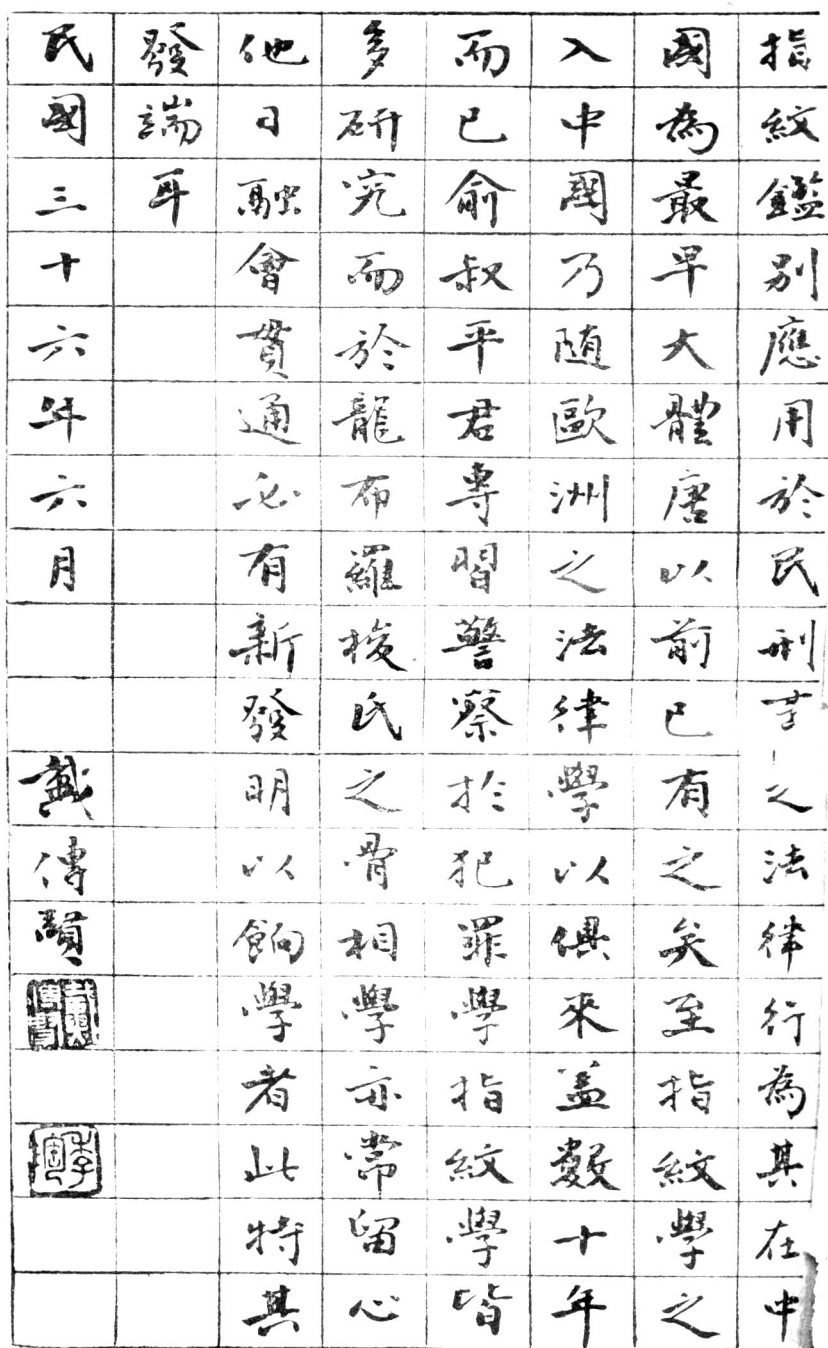 指紋鑑別應用於民刑葉之法律行為其在中
國為最早大體唐以前已有之矣至指紋學之
入中國乃随歐洲之法律學以俱來蓋數十年
而已俞叔平君專習警察於犯罪學指紋學皆
多研究而於龍布羅梭氏之骨相學亦常留心
他日融會貫通必有新發明以餉學者此特其
發端耳
民國三十六年六月 戴傳賢
戴傳賢
季陶